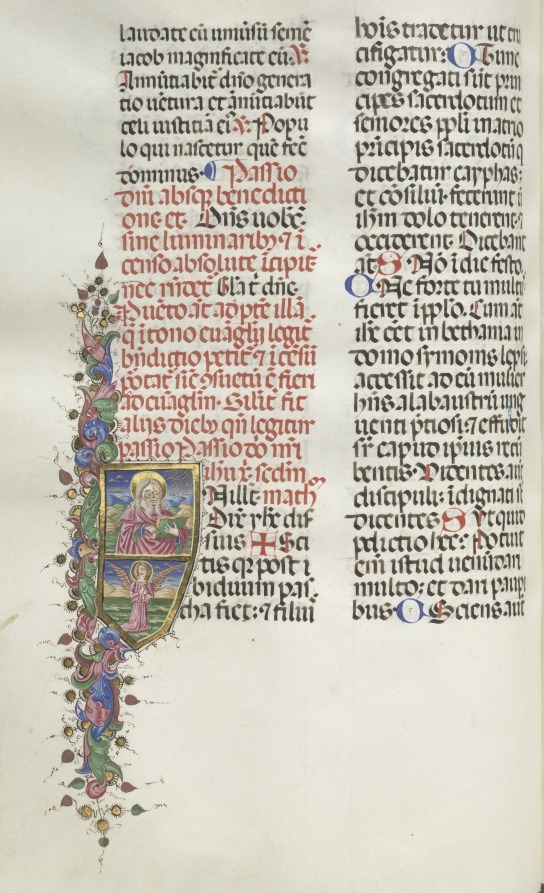 laudate eū uniuersū semē
iacob magnificate eū. ℟.
Annūtiabit̄ dn̄o genera
tio uētura et ānūtiabūt
celi iustitiā eī ℣. Popu
lo qui nascetur quē fec̄
dominus. Passio
dn̄i absqꝫ benedicti
one et. Dn̄s uobc̄.
sine luminaribꝫ ⁊ ī
censo absolute īcipit̄
nec rn̄det Gl̄a t̄ dn̄e.
Pueto at̄ ad ptē illā
q̄ ī tono euāglij legit̄
bn̄dictio petit̄ ⁊ īcēsū
portat̄ sic̄ ↄsuetū ē fieri
ad euagliū. Silit̄ fit
alijs diebꝫ qn̄ legitur
passio Passio dn̄i nr̄i
ihū xp̄i sedm̄
Nillt̄ math
Dix̄ yhc̄ dis
suis ✠ Sci
tis qꝛ post ī
biduum pas
cha fiet: ⁊ filiū
hoīs tradetur ut cru
cifigatur: C Tunc
congregati sūt prin
cipes sacerdotum et
seniores ppl̄i in atrio
prīcipis sacerdotū q
dicebatur cayphas:
et cōsiliū fecerunt ī
ihm̄ dolo tenerent ⁊
occiderent Dicebant
at̄ S Nō ī die festo.
C Ne forte tumultꝰ
fieret ī pplo. Cum at̄
ihc̄ eēt in bethania in
domo symonis lepsi
accessit ad eū mulier
hn̄s alabaustrū ung
uenti p̄tiosi: ⁊ effudit
sr̄ capud ipīus recū
bentis Videntes aūt
discipuli: īdignati sūt
dicentes S Vt quid
pdictio hec: Potuit
em̄ istud uenūdari
multo: et dari paupi
bus. C Sciens aūt